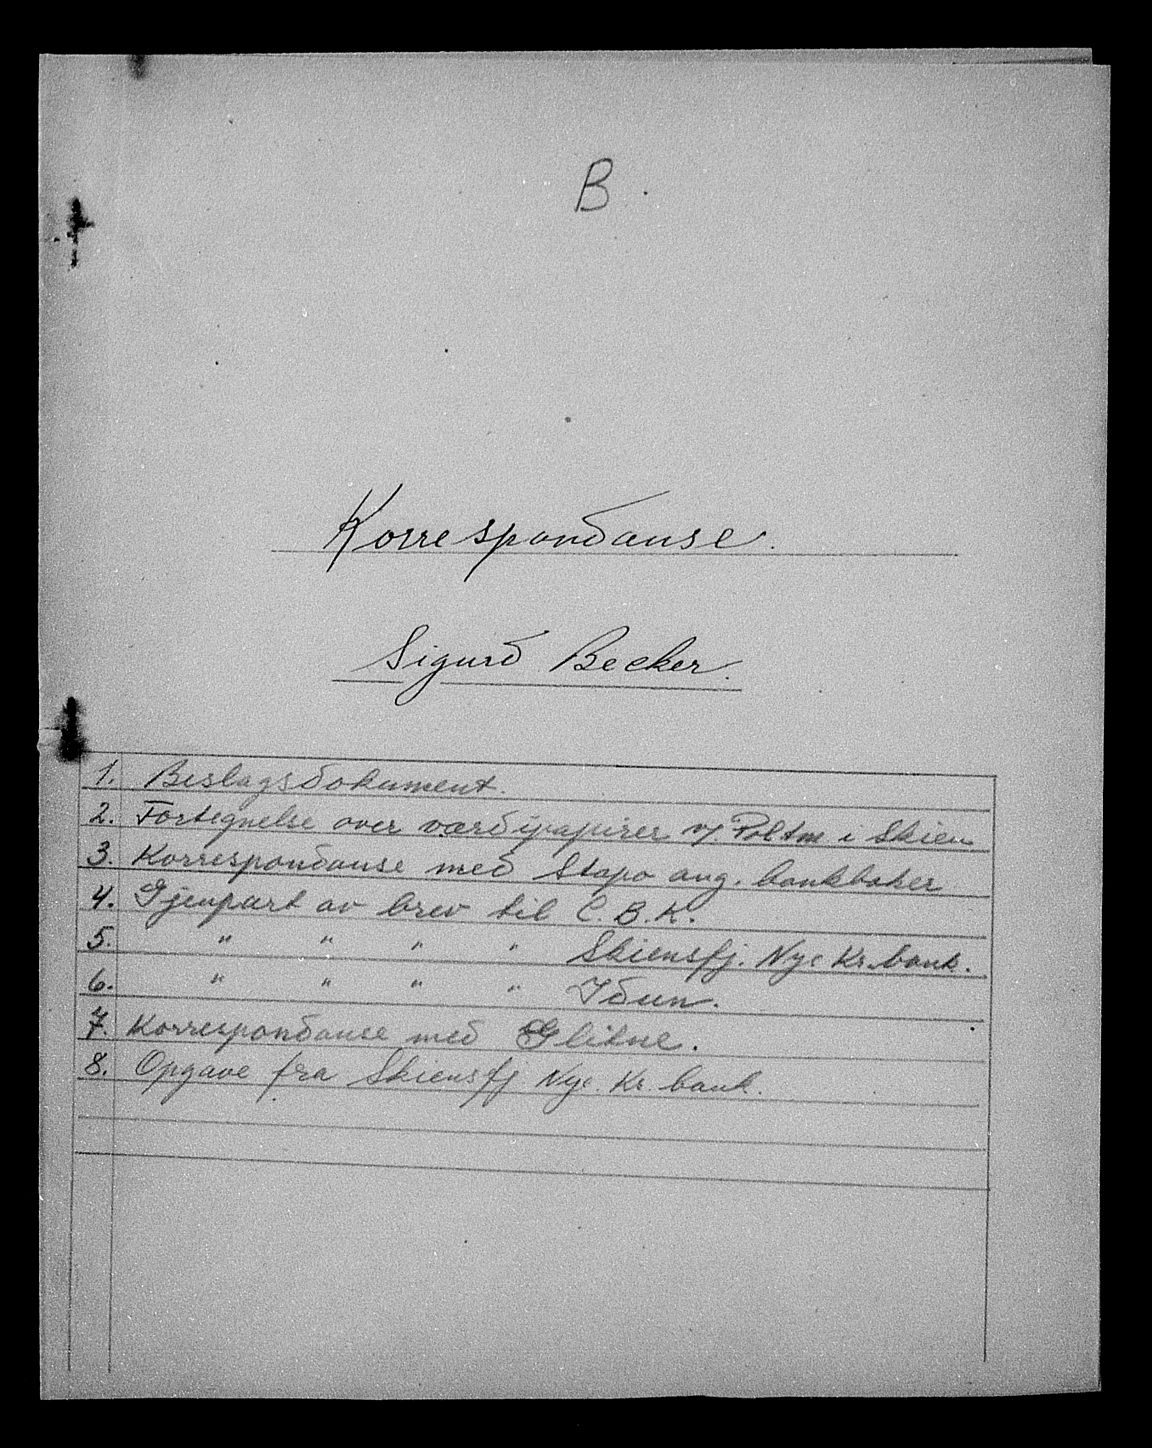 B.
Korrespondanse.
Sigurd Becker.
1. Beslagsdokument.
2. Fortegnelse over værdipapirer v/. Poltm i Skien
3. Korrespondanse med Stapo ang. bankbøker
4. Gjenpart av brev til C.B.K.
5. " " " " Skiensfj. Nye Kr.bank.
6. " " " " Idun.
7. Korrespondanse med Glitne.
8. Opgave fra Skiensfj Nye. Kr. bank.